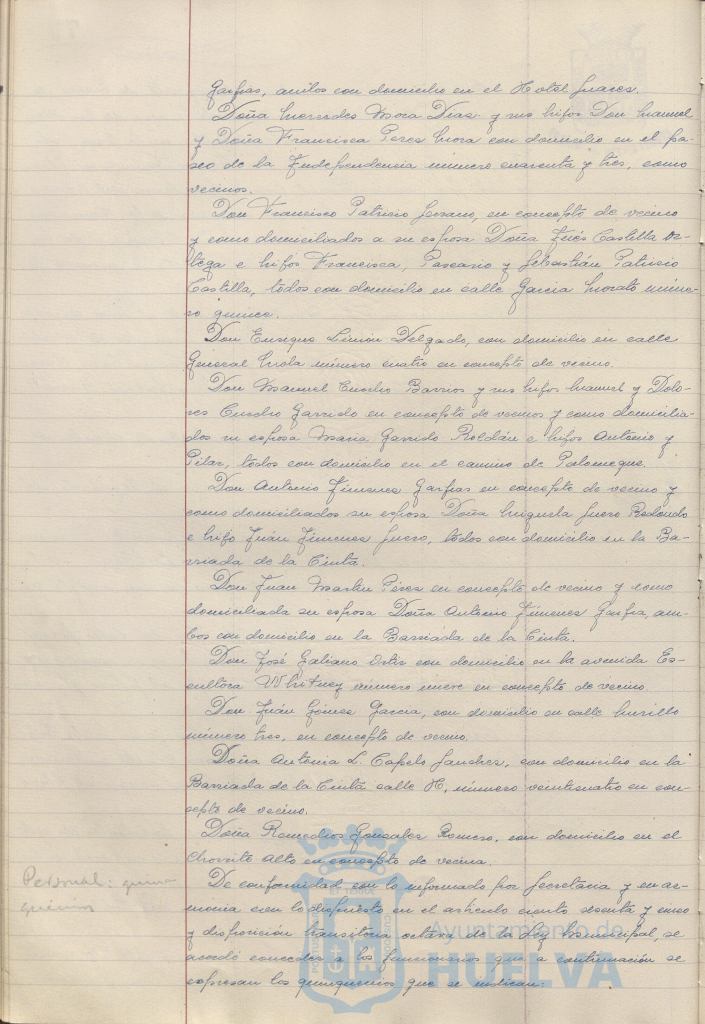 Garfias, ambos con domicilio en el Hotel Suarez.
Doña Mercedes Mora Diaz y sus hijos Don Manuel
y Doña Francisca Perez Mora con domicilio en el pa-
seo de la Independencia número cuarenta y tres, como
vecinos.
Don Francisco Patricio Lozano, en concepto de vecino
y como domiciliados a su esposa Doña Inés Castilla Or-
tega e hijos Francisca, y Sebastián Patricio
Castilla, todos con domicilio en calle Garcia Morato núme-
ro quince.
Don Enrique Limón Delgado, con domicilio en calle
General Mola número cuatro en concepto de vecino.
Don Manuel Cuedro Barrios y sus hijos Manuel y Dolo-
res Cuedro Garrido en concepto de vecinos y como domicilia-
dos su esposa Maria Garrido Roldán e hijos Antonio y
Pilar, todos con domicilio en el camino de Palomeque.
Don Antonio Jimenez Garfias en concepto de vecino y
como domiciliados su esposa Doña Miguela Suero Redondo
e hijo Juán Jimenez Suero, todos con domicilio en la Ba-
rriada de la Cinta.
Don Juan Martin Pérez en concepto de vecino y como
domiciliada su esposa Doña Antonia Jimenez Garfia, am-
bos con domicilio en la Barriada de la Cinta.
Don José Galiano Ortiz con domicilio en la avenida Es-
cultora Whitney número nueve en concepto de vecino.
Don Juán Gómez Garcia, con domicilio en calle Murillo
número tres, en concepto de vecino.
Doña Antonia L. Capelo Sanchez, con domicilio en la
Barriada de la Cinta calle H, número veinticuatro en con-
cepto de vecino.
Doña Remedios Gonzalez Romero, con domicilio en el
Chorrito Alto en concepto de vecina.
Personal: quin-
quenios
De conformidad con lo informado por Secretaria y en ar-
monia con lo dispuesto en el artículo ciento sesenta y cinco
y disposición transitoria octava de la Ley Municipal, se
acordó conceder a los funcionarios que a continuación se
expresan los quinquenios que se indican:
Ayuntamiento de
HUELVA